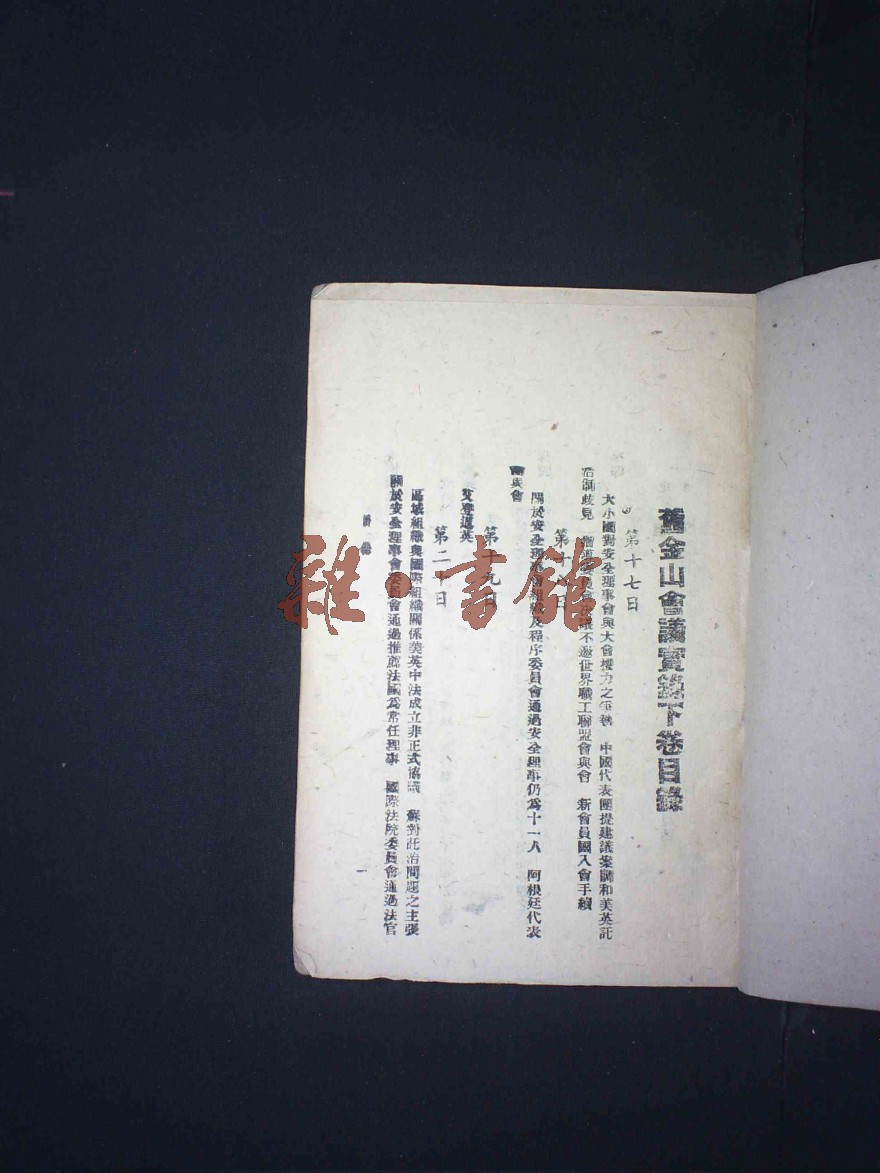 舊金山會議實錄下卷目錄
第十七日
大小國對安全理事會與大會權力之爭執　中國代表團提建議案調和美英託
治制歧見　指導委員會決議不邀世界職工聯盟會與會　新會員國入會手續
第十八日
關於安全理事會組織及程序委員會通過安全理事仍為十一人　阿根廷代表
與會
第十九日
艾登返英
第二十日
區域組織與國際組織關係美英中法成立非正式協議　蘇對託治問題之主張
關於安全理事會委員會通過推薦法國為常任理事　國際法院委員會通過法官
目錄
一
雜·書館